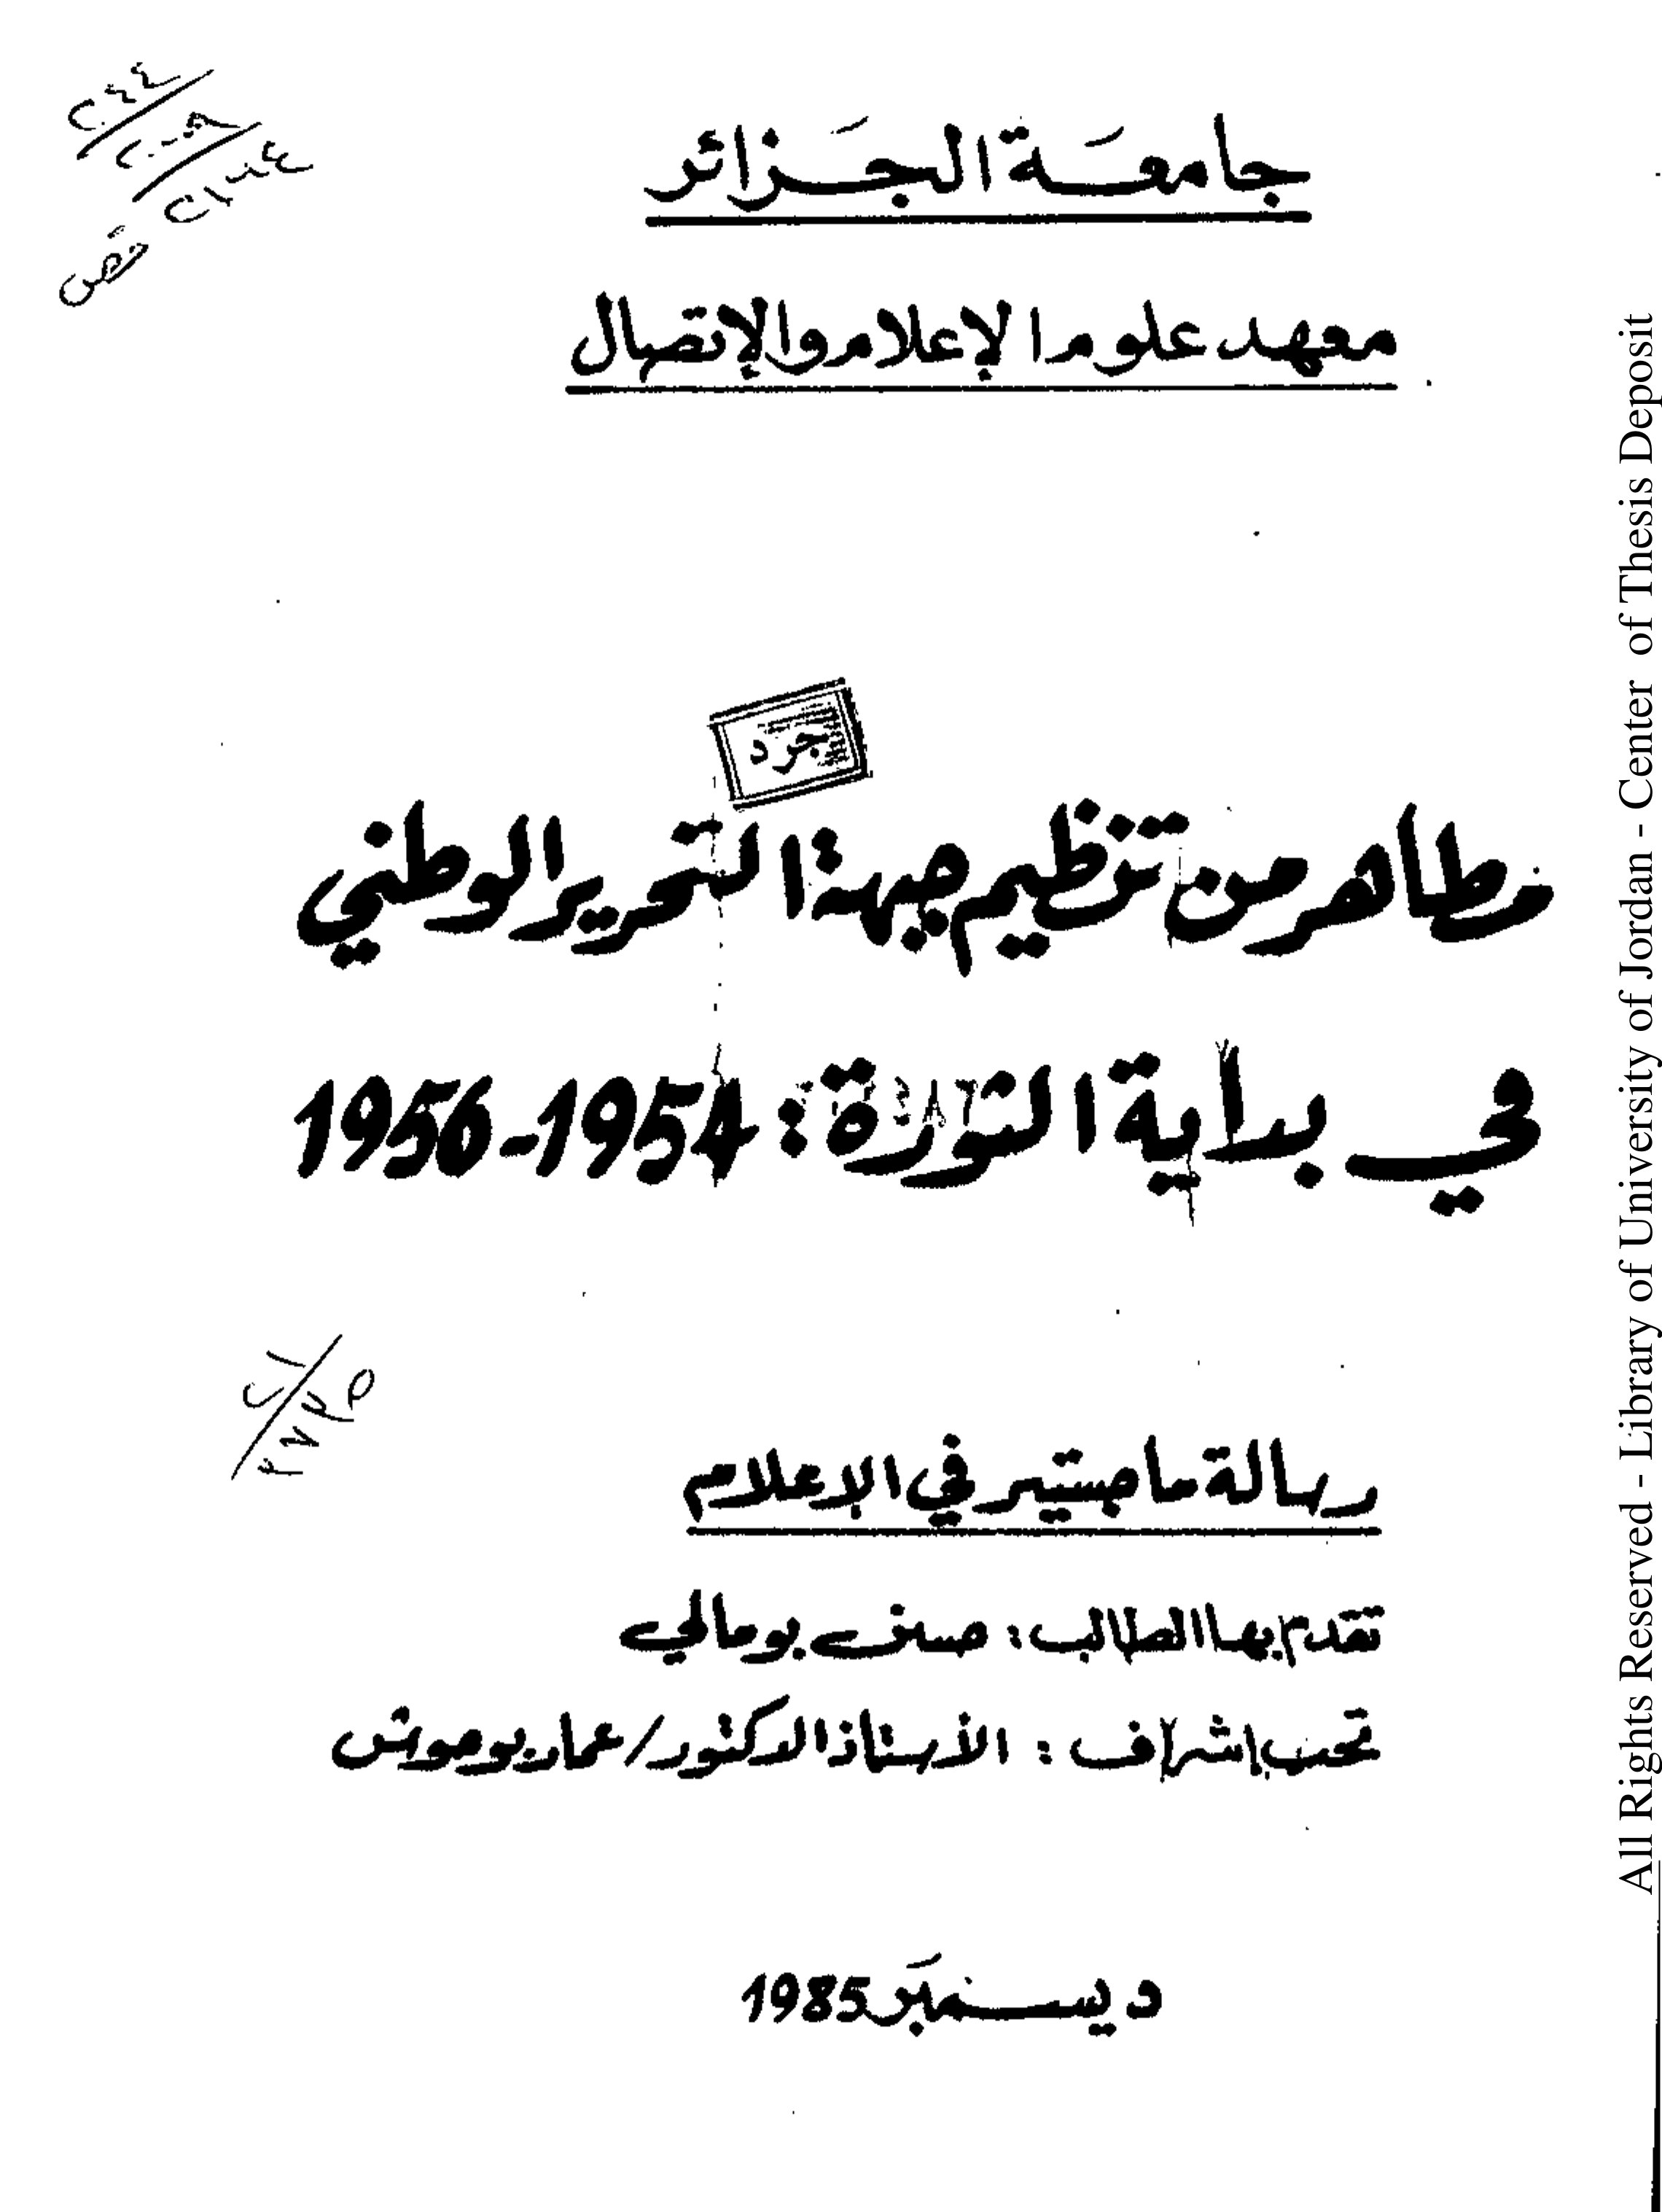 جامعة الجزائر
معهد علوم الإعلام والإتصال
جرد
مظاهر من تنظيم جبهة التحرير الوطني
في بداية الثورة : 1954-1956
رسالة ماجستير في الإعلام
تقدم بها الطالب : حسن بومالي
تحت إشراف : الأستاذ الدكتور / عمار بوحوش
ديسمبر 1985
All Rights Reserved - Library of University of Jordan - Center of Thesis Deposit